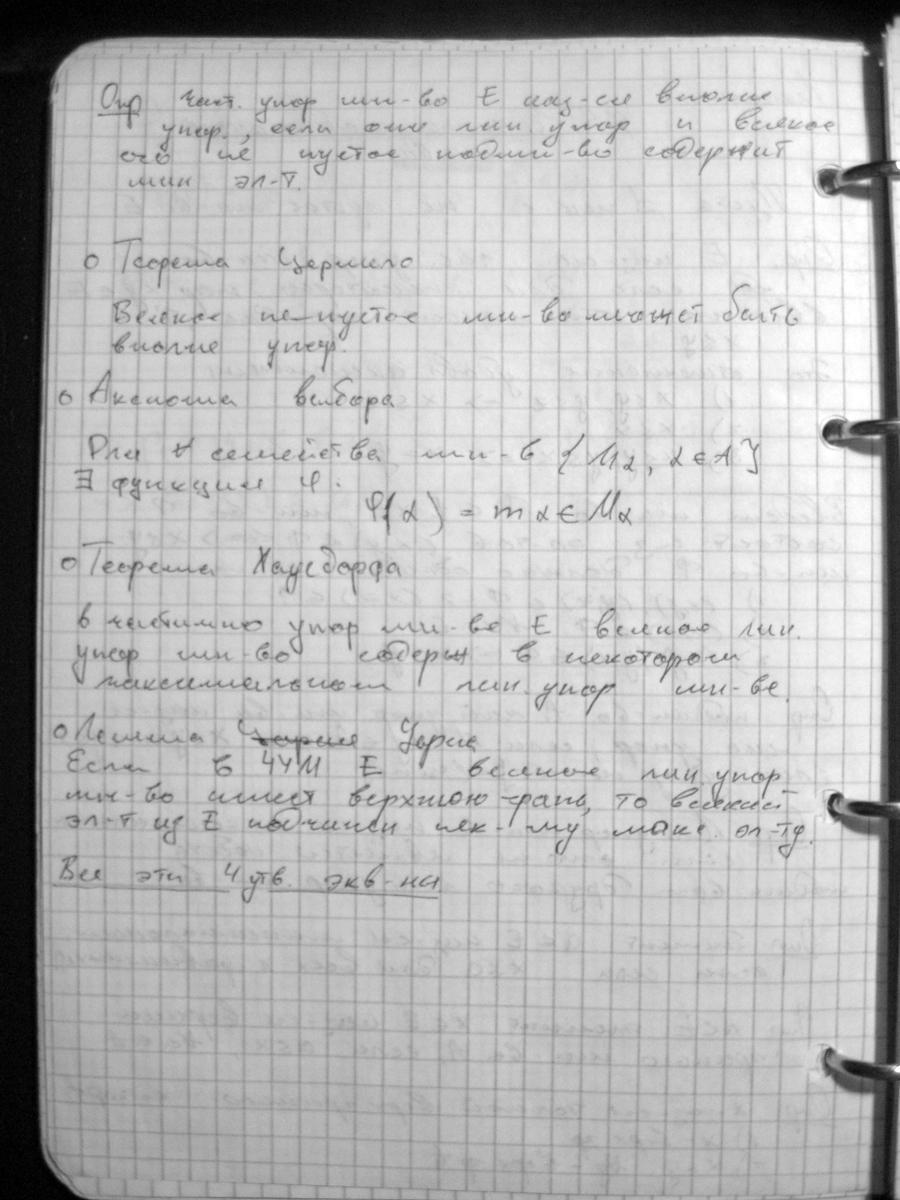 Опр Част. упор мн-во E наз-ся вполне
упор., если оно лин. упор и всякое
его не пустое подмн-во содержит
мин эл-т.
o Теорема Цермело
Всякое не пустое мн-во может быть
вполне упор.
o Аксиома выбора
Для ∀ семейства мн-в {Mα, α ∈ A}
∃ функция φ:
φ(α) = mα ∈ Mα
o Теорема Хаусдорфа
В частично упор мн-ве E всякое лин.
упор мн-во содерж в некотором
максимальном лин. упор мн-ве.
o Лемма Цорна
Если в ЧУМ E всякое лин. упор
мн-во имеет верхнюю грань, то всякий
эл-т из E подчинен нек-му макс. эл-ту.
Все эти 4 утв. экв-ны